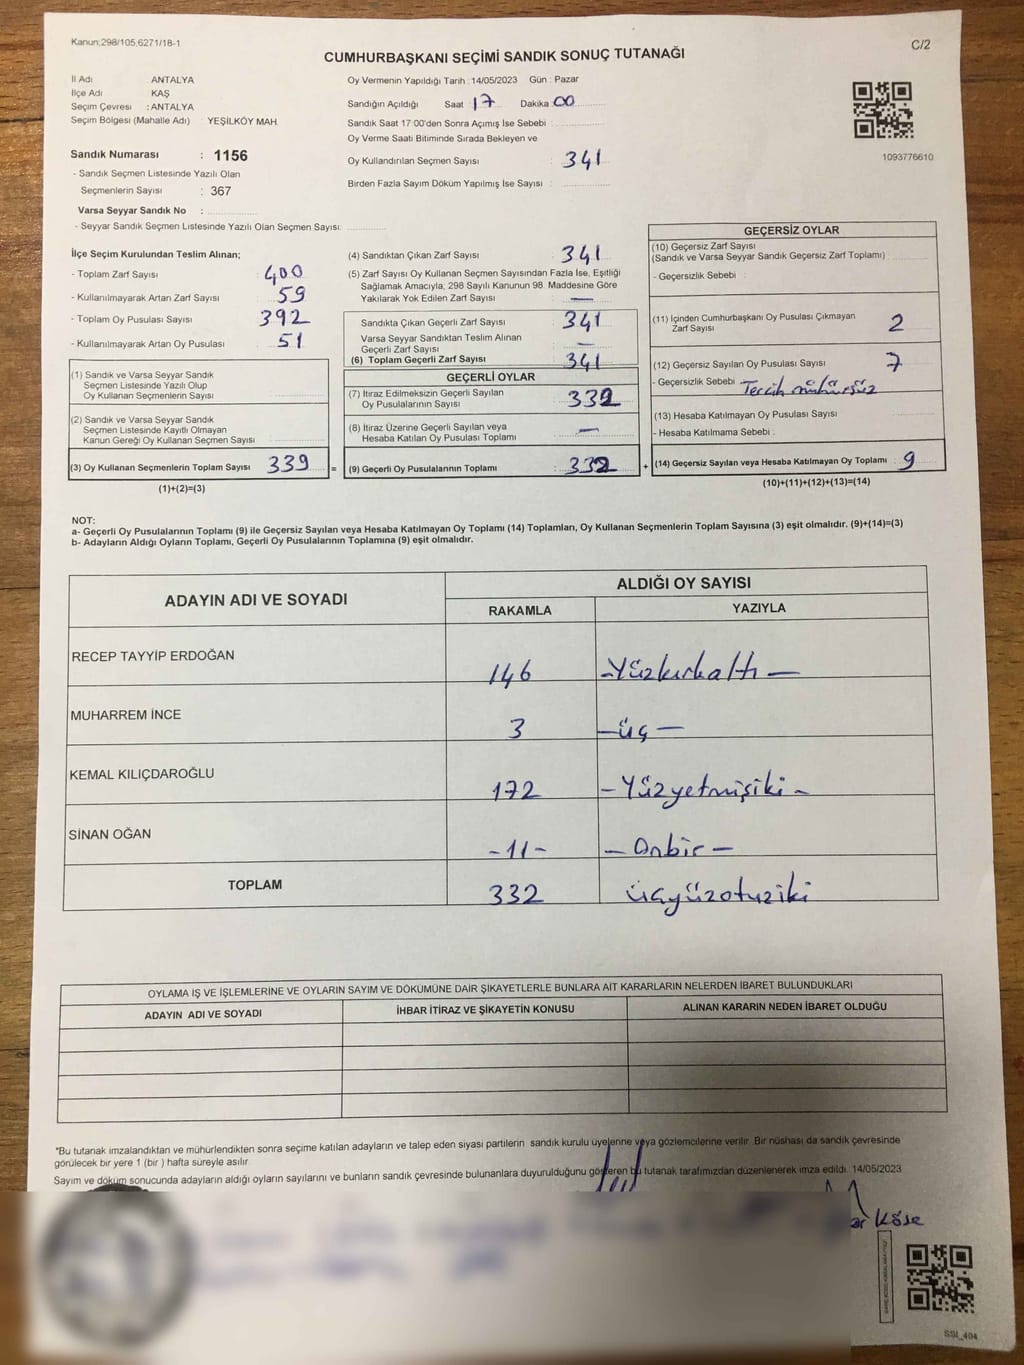 Kanun;298/105;6271/18-1
C/2
CUMHURBAŞKANI SEÇİMİ SANDIK SONUÇ TUTANAĞI
İl Adı ANTALYA
İlçe Adı KAŞ
Seçim Çevresi : ANTALYA
Seçim Bölgesi (Mahalle Adı) : YEŞİLKÖY MAH.
Sandık Numarası : 1156
- Sandık Seçmen Listesinde Yazılı Olan
Seçmenlerin Sayısı : 367
Varsa Seyyar Sandık No :
- Seyyar Sandık Seçmen Listesinde Yazılı Olan Seçmen Sayısı:
Oy Vermenin Yapıldığı Tarih : 14/05/2023 Gün : Pazar
Sandığın Açıldığı Saat 17 Dakika 00
Sandık Saat 17:00'den Sonra Açımış İse Sebebi :
Oy Verme Saati Bitiminde Sırada Bekleyen ve
Oy Kullandırılan Seçmen Sayısı : 341
Birden Fazla Sayım Döküm Yapılmış İse Sayısı :
1093776610
İlçe Seçim Kurulundan Teslim Alınan;
- Toplam Zarf Sayısı : 400
- Kullanılmayarak Artan Zarf Sayısı : 59
- Toplam Oy Pusulası Sayısı : 392
- Kullanılmayarak Artan Oy Pusulası : 51
(1) Sandık ve Varsa Seyyar Sandık
Seçmen Listesinde Yazılı Olup
Oy Kullanan Seçmenlerin Sayısı :
(2) Sandık ve Varsa Seyyar Sandık
Seçmen Listesinde Kayıtlı Olmayan
Kanun Gereği Oy Kullanan Seçmen Sayısı :
(3) Oy Kullanan Seçmenlerin Toplam Sayısı : 339 =
(1)+(2)=(3)
(4) Sandıktan Çıkan Zarf Sayısı : 341
(5) Zarf Sayısı Oy Kullanan Seçmen Sayısından Fazla İse, Eşitliği
Sağlamak Amacıyla; 298 Sayılı Kanunun 98. Maddesine Göre
Yakılarak Yok Edilen Zarf Sayısı : —
Sandıkta Çıkan Geçerli Zarf Sayısı : 341
Varsa Seyyar Sandıktan Teslim Alınan
Geçerli Zarf Sayısı : —
(6) Toplam Geçerli Zarf Sayısı : 341
GEÇERLİ OYLAR
(7) İtiraz Edilmeksizin Geçerli Sayılan
Oy Pusulalarının Sayısı : 332
(8) İtiraz Üzerine Geçerli Sayılan veya
Hesaba Katılan Oy Pusulası Toplamı : —
(9) Geçerli Oy Pusulalarının Toplamı : 332 +
GEÇERSİZ OYLAR
(10) Geçersiz Zarf Sayısı
(Sandık ve Varsa Seyyar Sandık Geçersiz Zarf Toplamı) :
- Geçersizlik Sebebi :
(11) İçinden Cumhurbaşkanı Oy Pusulası Çıkmayan
Zarf Sayısı : 2
(12) Geçersiz Sayılan Oy Pusulası Sayısı : 7
- Geçersizlik Sebebi : Tercih mühürsüz
(13) Hesaba Katılmayan Oy Pusulası Sayısı :
- Hesaba Katılmama Sebebi :
(14) Geçersiz Sayılan veya Hesaba Katılmayan Oy Toplamı : 9
(10)+(11)+(12)+(13)=(14)
NOT:
a- Geçerli Oy Pusulalarının Toplamı (9) ile Geçersiz Sayılan veya Hesaba Katılmayan Oy Toplamı (14) Toplamları, Oy Kullanan Seçmenlerin Toplam Sayısına (3) eşit olmalıdır. (9)+(14)=(3)
b- Adayların Aldığı Oyların Toplamı, Geçerli Oy Pusulalarının Toplamına (9) eşit olmalıdır.
ADAYIN ADI VE SOYADI
ALDIĞI OY SAYISI
RAKAMLA YAZIYLA
RECEP TAYYİP ERDOĞAN 146 -Yüzkırkaltı-
MUHARREM İNCE 3 -üç-
KEMAL KILIÇDAROĞLU 172 -Yüzyetmişiki-
SİNAN OĞAN -11- -Onbir-
TOPLAM 332 üçyüzotuziki
OYLAMA İŞ VE İŞLEMLERİNE VE OYLARIN SAYIM VE DÖKÜMÜNE DAİR ŞİKAYETLERLE BUNLARA AİT KARARLARIN NELERDEN İBARET BULUNDUKLARI
ADAYIN ADI VE SOYADI
İHBAR İTİRAZ VE ŞİKAYETİN KONUSU
ALINAN KARARIN NEDEN İBARET OLDUĞU
*Bu tutanak imzalandıktan ve mühürlendikten sonra seçime katılan adayların ve talep eden siyasi partilerin sandık kurulu üyelerine veya gözlemcilerine verilir. Bir nüshası da sandık çevresinde
görülecek bir yere 1 (bir ) hafta süreyle asılır.
Sayım ve döküm sonucunda adayların aldığı oyların sayılarını ve bunların sandık çevresinde bulunanlara duyurulduğunu gösteren bu tutanak tarafımızdan düzenlenerek imza edildi. 14/05/2023
Köse
SSI_404